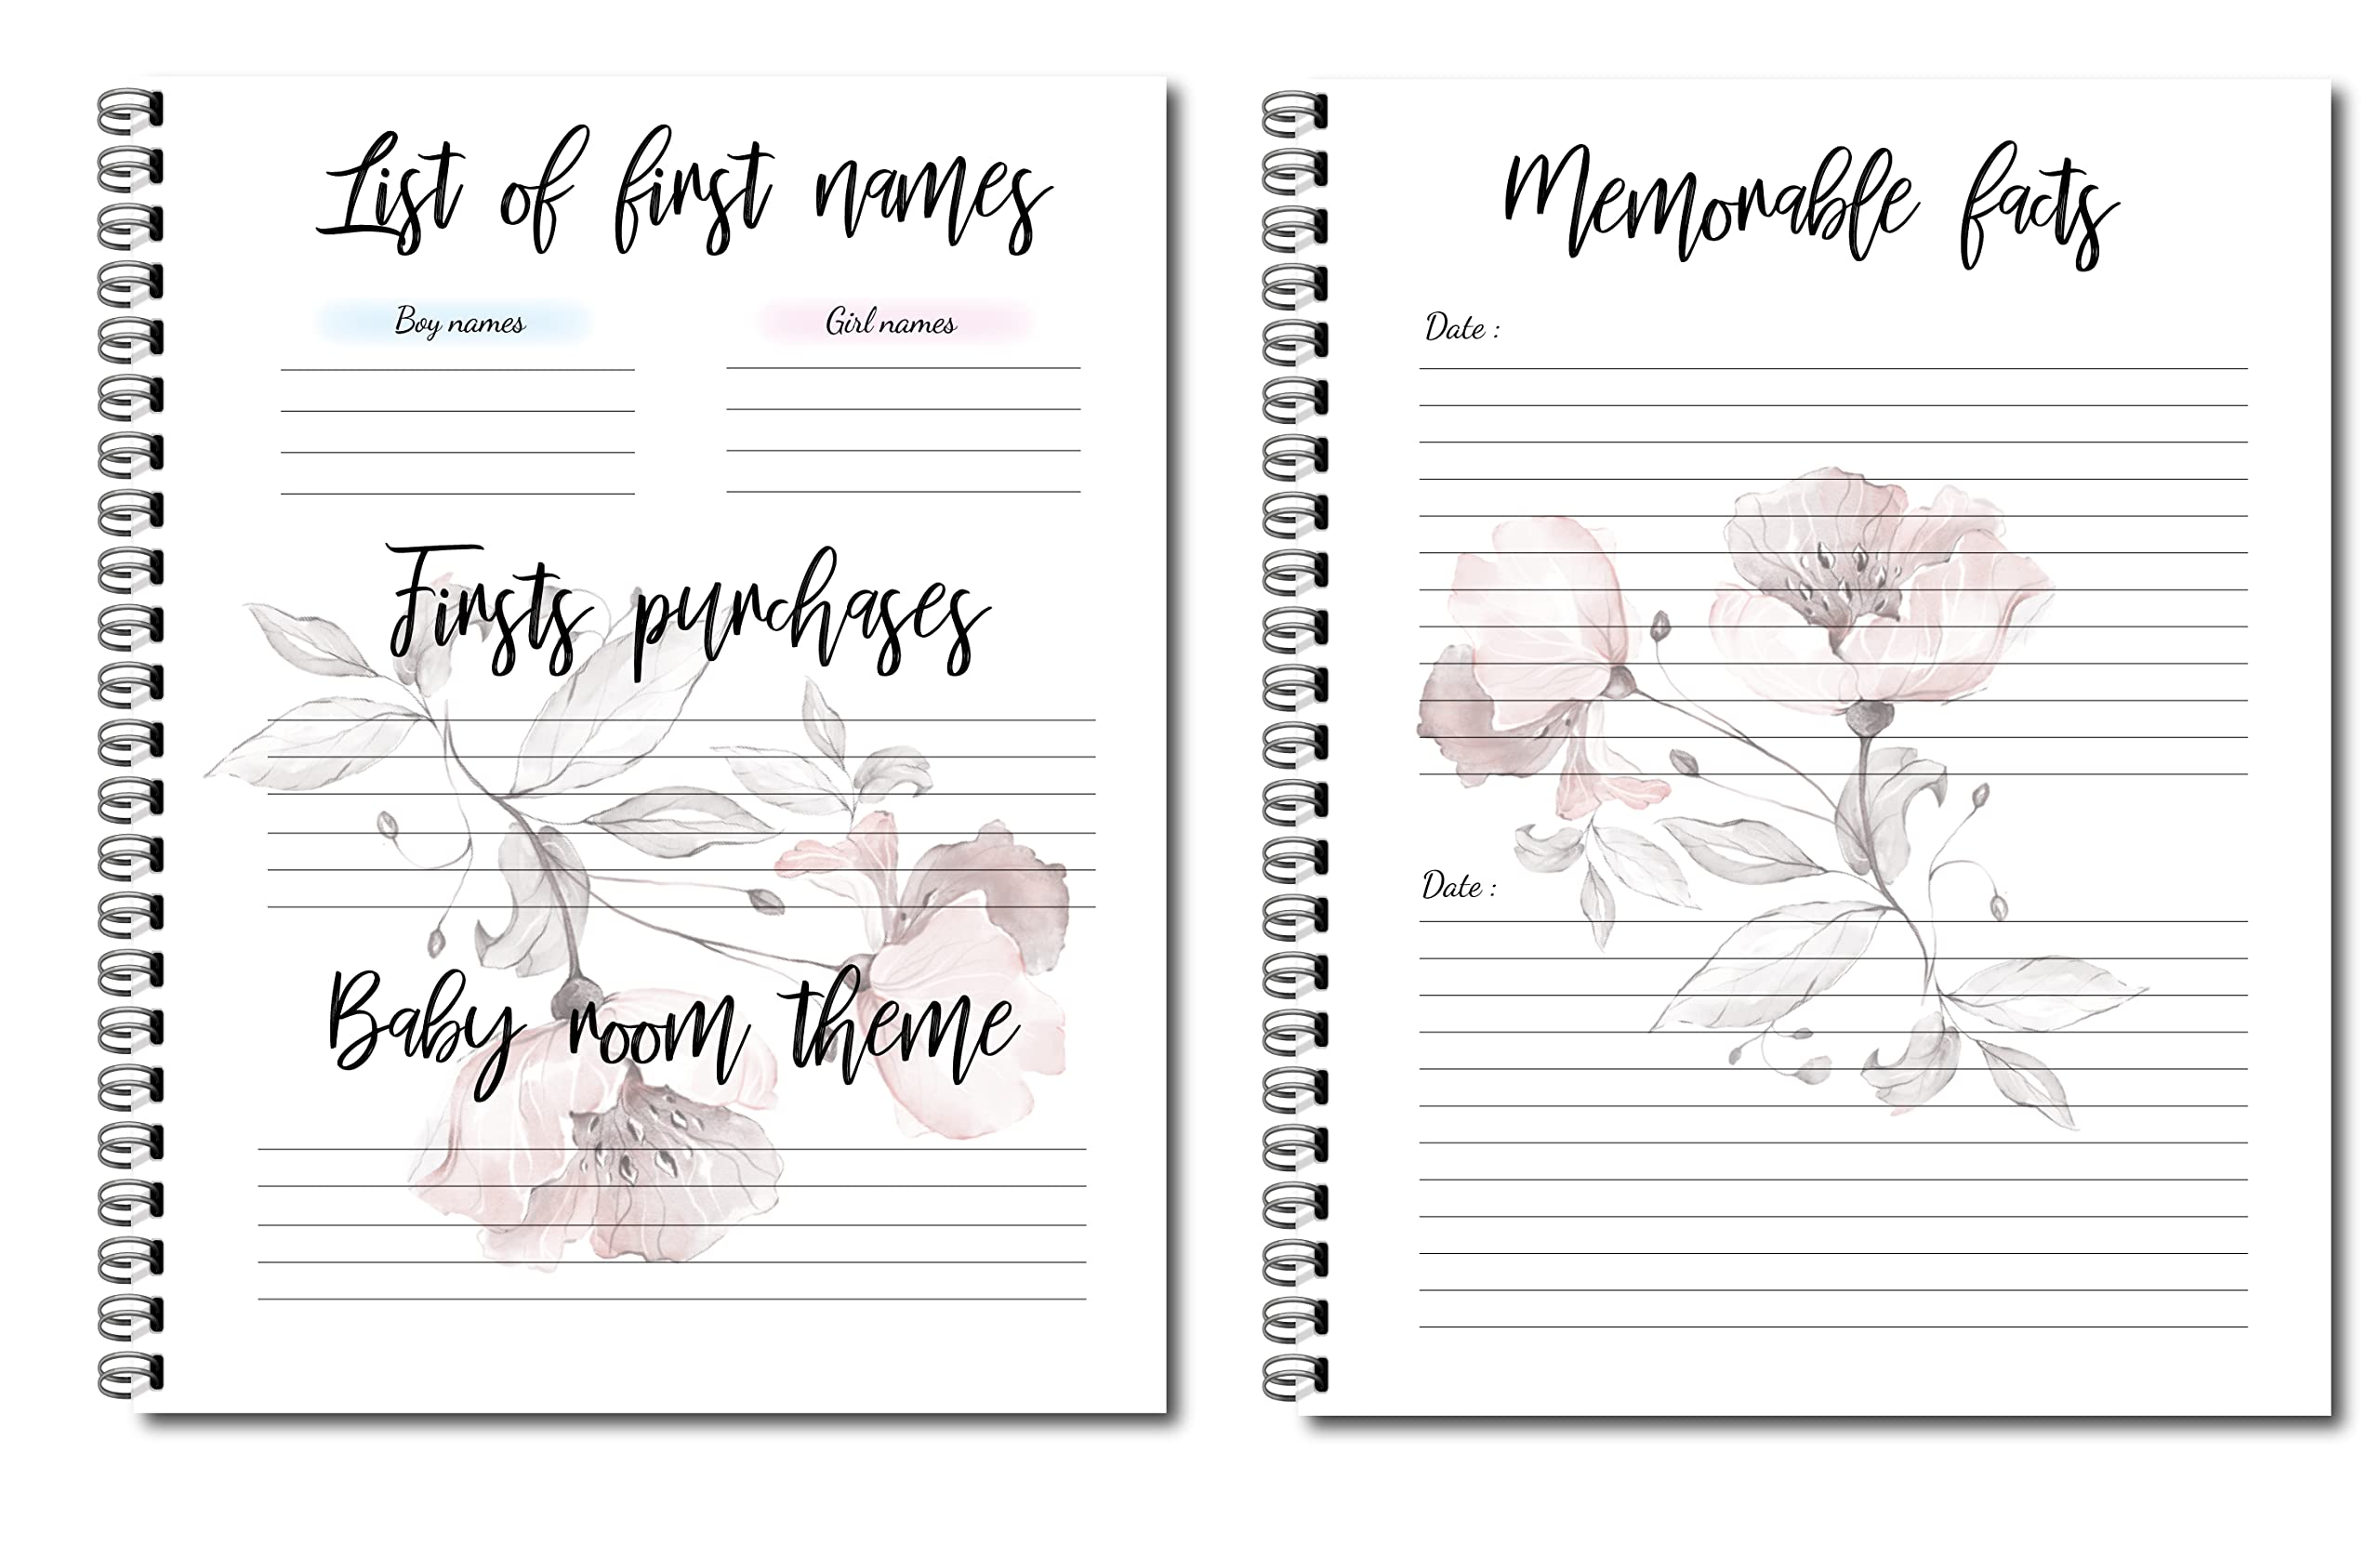 List of first names
Boy names
Girl names
Firsts purchases
Baby room theme
Memorable facts
Date :
Date :